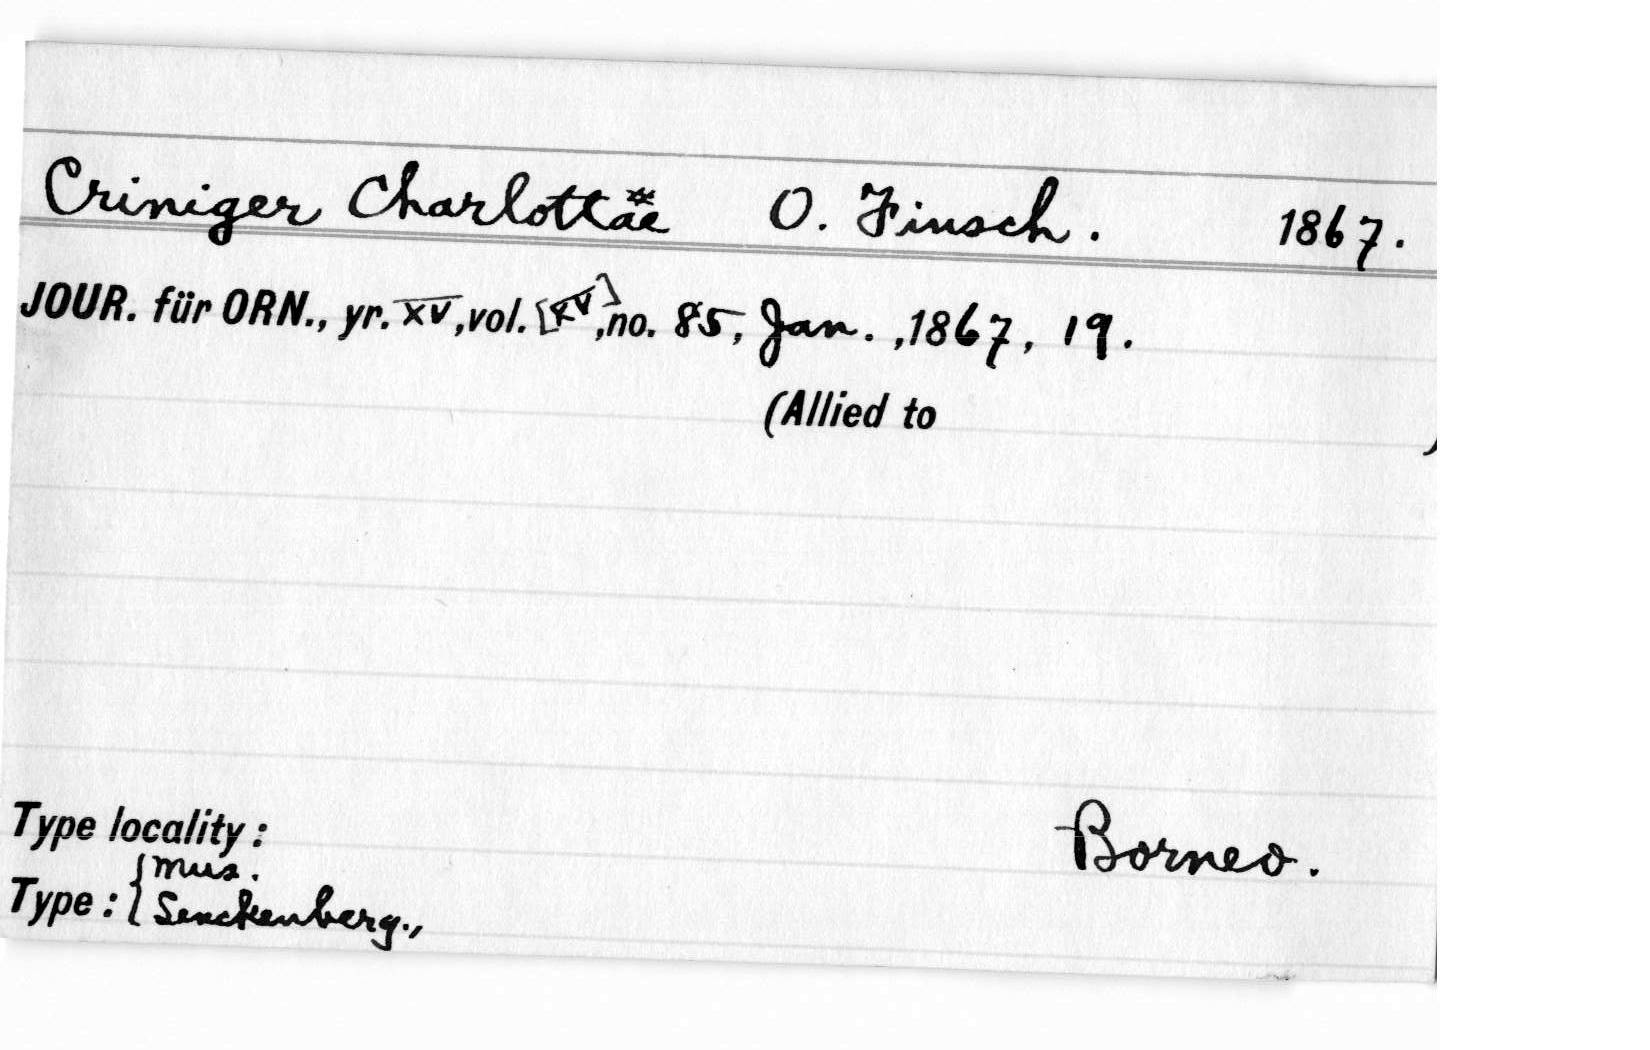 Criniger Charlottäe O. Finsch. 1867.
JOUR. für ORN., yr. XV, vol. [XV], no. 85, Jan. , 1867, 19.
(Allied to )
Type locality: Borneo.
Type: { Mus.
Senckenberg.,